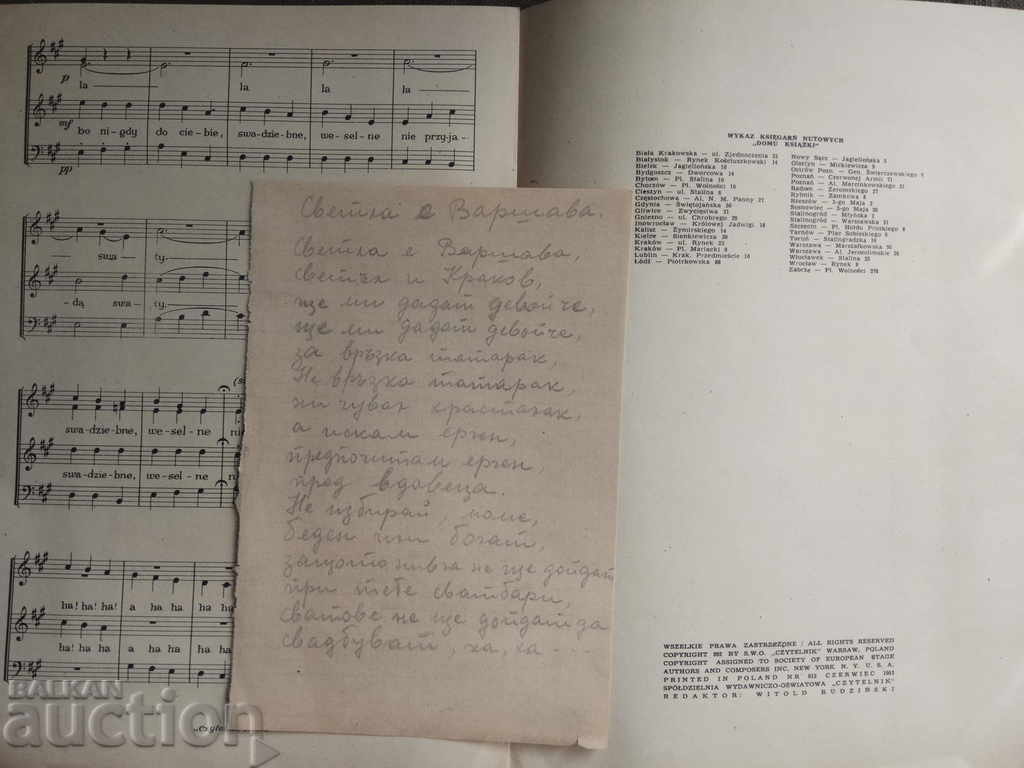 p
la la la la
mf
bo ni-gdy do cie-bie, swa-dzieb-ne, we-sel-ne nie przy-ja-
pp
swa ty.
dą swa-ty.
swa-dziebne, we-sel-ne
swa-dziebne, we-sel-ne
ha! ha! ha! a ha ha ha
ha! ha! ha! a ha ha ha
„Czyte
Светла е Варшава.
Светла е Варшава
светла и Краков,
ще ми дадат девойче,
ще ми дадат девойче,
за връзка татарак,
Не връзка татарак,
а искам ерген,
предпочитам ерген,
пред вдовеца.
Не избирай, моме,
беден или богат,
защото не ще дойдат
при тебе сватбари,
сватове не ще дойдат за
свадбуват, ха, ха - - -
WYKAZ KSIĘGARŃ NUTOWYCH
„DOMU KSIĄŻKI"
Biała Krakowska — ul. Zjednoczenia 21
Białystok — Rynek Kościuszkowski 14
Bielsk — Jagiellońska 10
Bydgoszcz — Dworcowa 14
Bytom — Pl. Stalina 1
Chorzów — Pl. Wolności 16
Cieszyn — ul. Stalina 6
Częstochowa — Al. N. M. Panny 21
Gdynia — Świętojańska 36
Gliwice — Zwycięstwa 31
Gniezno — ul. Chrobrego 28
Inowrocław — Królowej Jadwigi 16
Kalisz — Żymirskiego 14
Kielce — Sienkiewicza 29
Kraków — ul. Rynek 23
Kraków — Pl. Mariacki 9
Lublin — Krak. Przedmieście 16
Łódź — Piotrkowska 88
Nowy Sącz — Jagiellońska 3
Olsztyn — Mickiewicza 9
Ostrów Pozn. — Gen. Świerczewskiego 1
Poznań — Czerwonej Armii 71
Poznań — Al. Marcinkowskiego 21
Radom — Żeromskiego 27
Rybnik — Zamkowa 4
Rzeszów — 3-go Maja 2
Sosnowiec — 3-go Maja 20
Stalinogród — Młyńska 2
Stalinogród — Warszawska 21
Szczecin — Pl. Hołdu Pruskiego 8
Tarnów — Plac Sobieskiego 3
Toruń — Stalingradzka 10
Warszawa — Marszałkowska 30
Warszawa — Al. Jerozolimskie 28
Włocławek — Stalina 23
Wrocław — Rynek 9
Zabrze — Pl. Wolności 278
WSZELKIE PRAWA ZASTRZEŻONE / ALL RIGHTS RESERVED
COPYRIGHT BY S.W.O. „CZYTELNIK" WARSAW, POLAND
COPYRIGHT ASSIGNED TO SOCIETY OF EUROPEAN STAGE
AUTHORS AND COMPOSERS INC. NEW YORK N. Y. U. S. A.
PRINTED IN POLAND NR CZERWIEC 1953
SPÓŁDZIELNIA WYDAWNICZO-OŚWIATOWA „CZYTELNIK"
REDAKTOR: WITOLD RUDZIŃSKI
BALKAN
auction